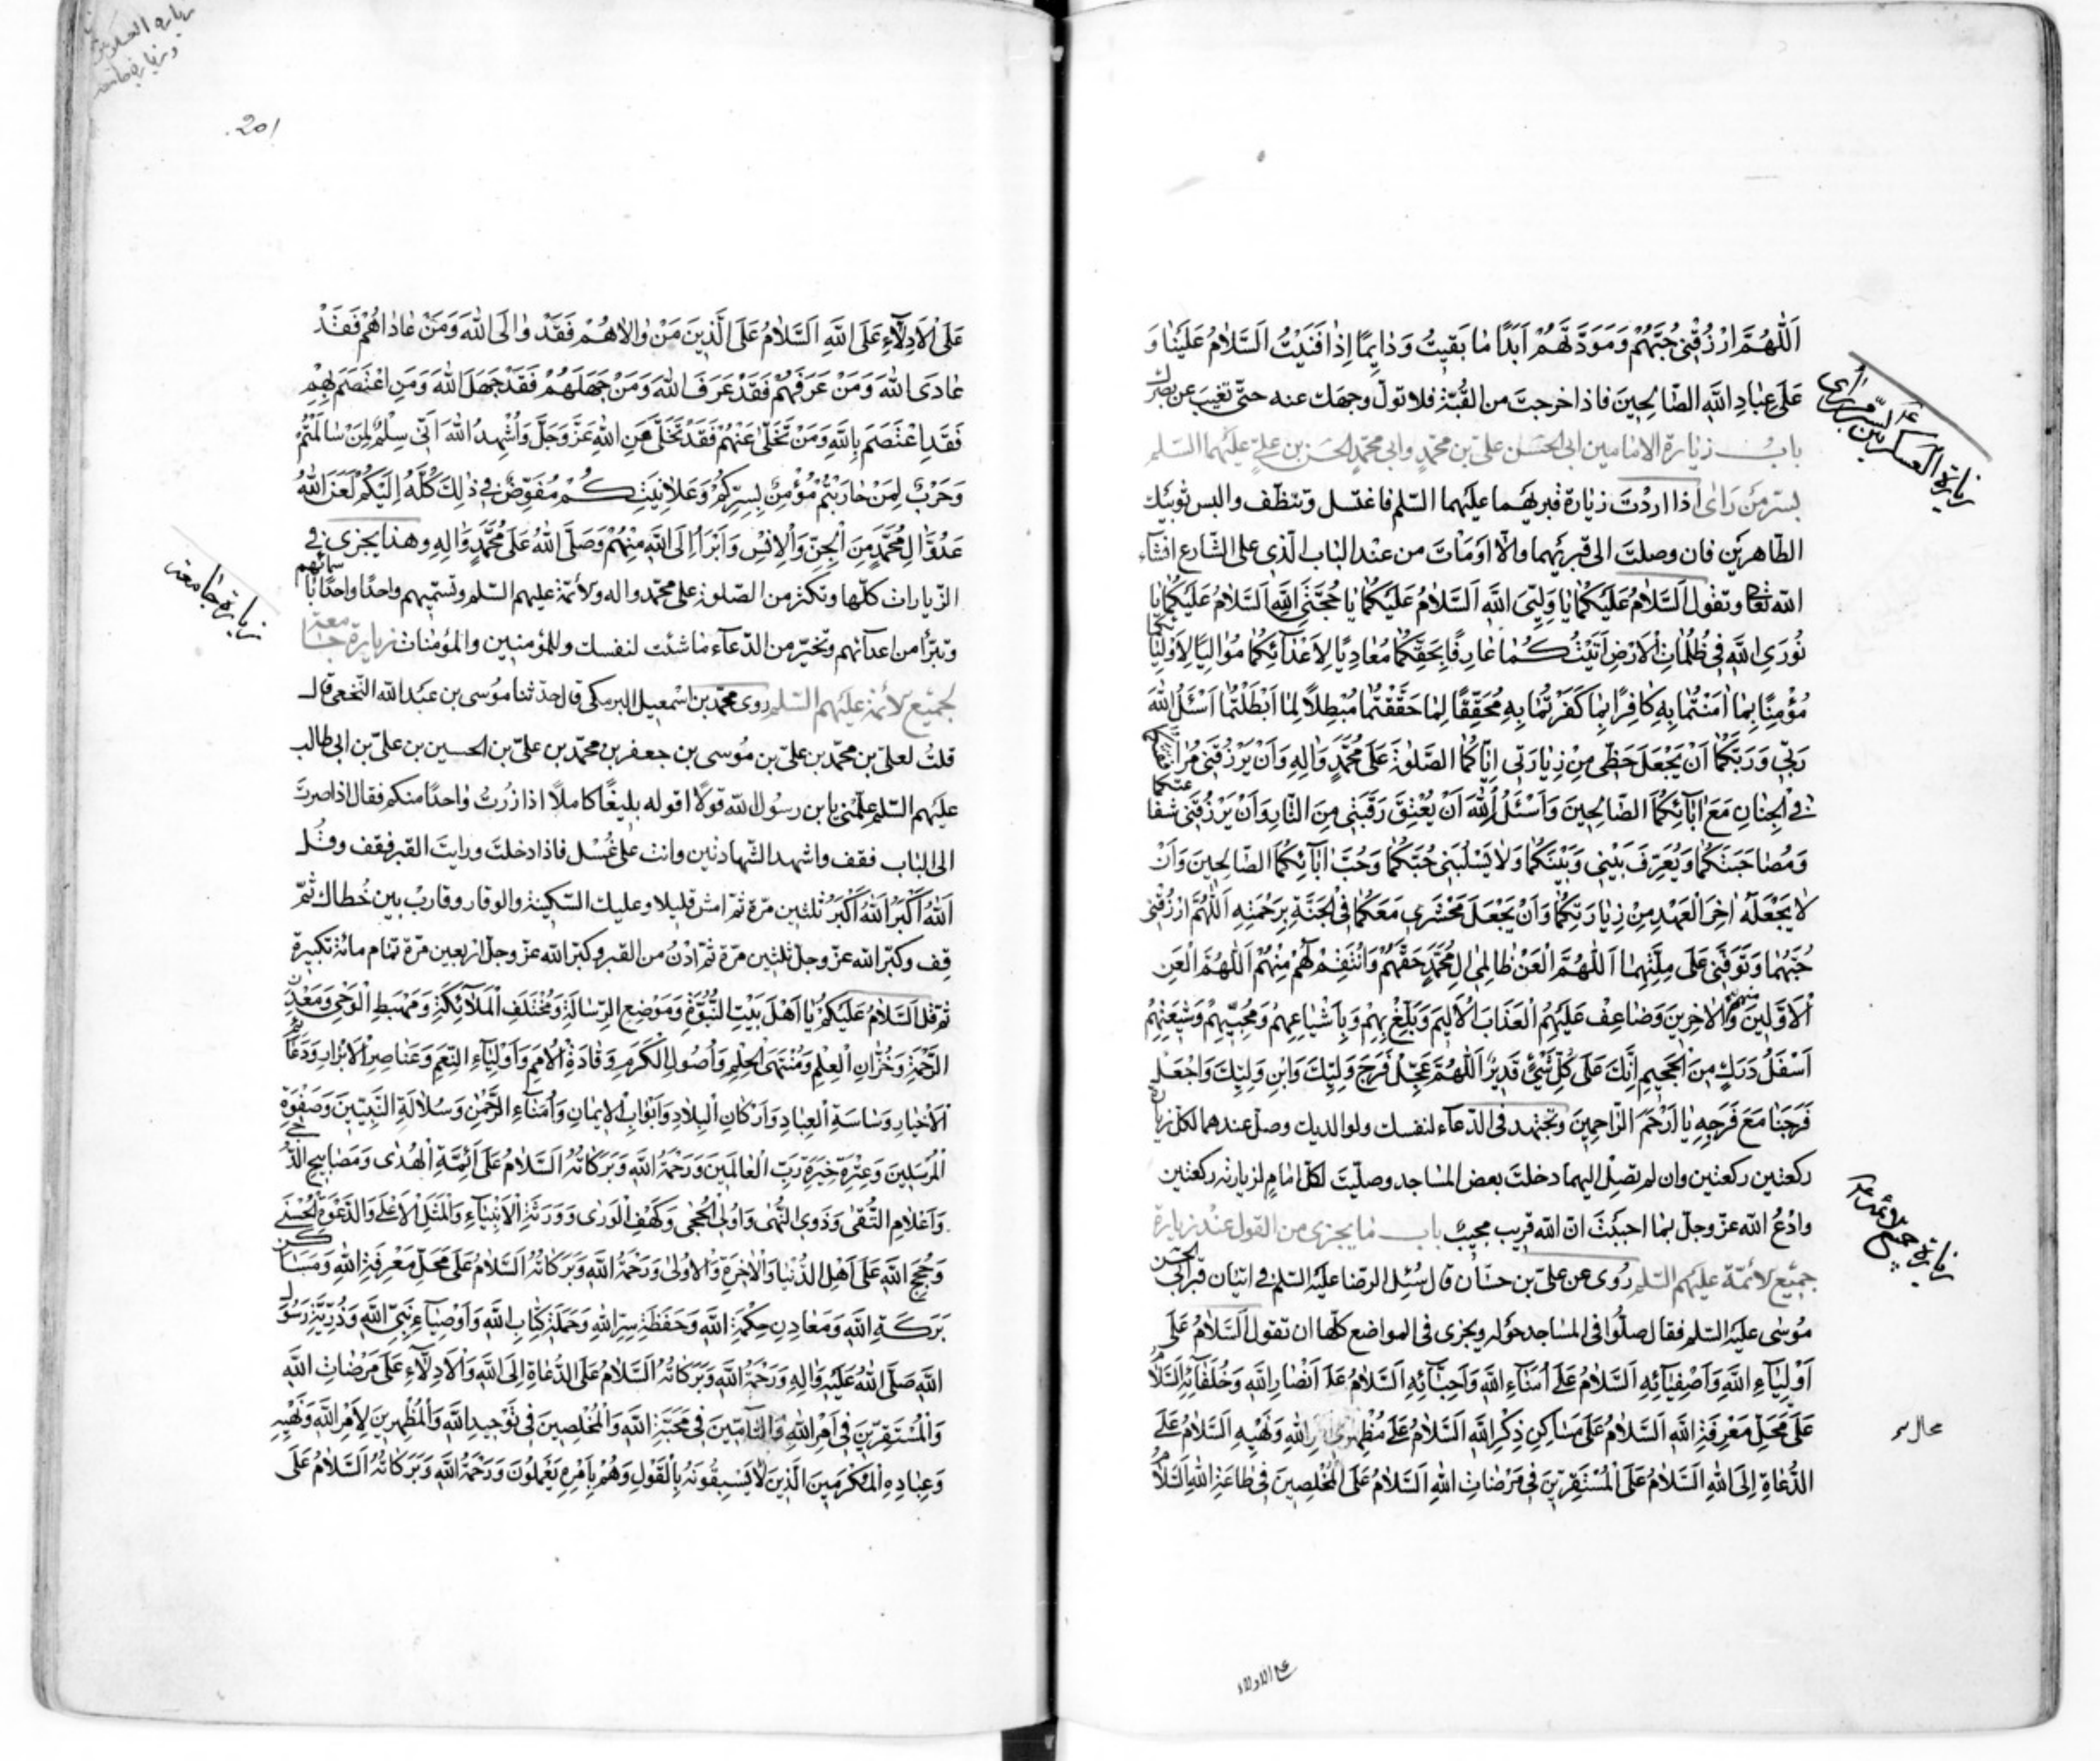 اَللّٰهُمَّ ارْزُقْنى حُبَّهُمْ وَمَوَدَّتَهُمْ اَبَدًا مٰا بَقيتُ وَدٰايِمًا اِذٰا فَنَيْتُ اَلسَّلامُ عَلَيْنٰا وَ
عَلىٰ عِبٰادِ اللّٰهِ الصّٰالِحِينَ فاذا خرجت من القُبّة فلا تولّ وجهك عنه حتّى تغيب عن بصرك
باب زيارة الامامين ابى الحسن علىّ بن محمّدٍ وابى محمّدٍ الحسن بن علىّ عليهما السّلم
بسرّ من رَاىٰ اذا اردْتَ زيارة قبريهما عليهما السّلم فاغتسل وتنظّف والبس ثوبيك
الطّاهرين فان وصلتَ الى قبريهما والّا اومأت من عند الباب الّذى على الشّارع انشآء
اللّه تعالى وتقول اَلسَّلامُ عَلَيْكُمٰا يٰا وَلِيَّىِ اللّٰهِ اَلسَّلامُ عَلَيْكُمٰا يٰا حُجَّتَىِ اللّٰهِ اَلسَّلامُ عَلَيْكُمٰا يٰا
نُورَىِ اللّٰهِ فى ظُلُمٰاتِ الْاَرْضِ اَتَيْتُكُمٰا عٰارِفًا بِحَقِّكُمٰا مُعٰادِيًا لِاَعْدٰآئِكُمٰا مُوٰالِيًا لِاَوْلِيٰا
مُؤْمِنًا بِمٰا اٰمَنْتُمٰا بِهِ كٰافِرًا بِمٰا كَفَرْتُمٰا بِهِ مُحَقِّقًا لِمٰا حَقَّقْتُمٰا مُبْطِلًا لِمٰا اَبْطَلْتُمٰا اَسْئَلُ اللّٰهَ
رَبّى وَرَبَّكُمٰا اَنْ يَجْعَلَ حَظّى مِنْ زِيٰارَتى اِيّٰاكُمَا الصَّلٰوةَ عَلىٰ مُحَمَّدٍ وَاٰلِهِ وَاَنْ يَرْزُقَنى مُرٰافَقَتَكُمٰا
فى الْجِنٰانِ مَعَ اٰبٰآئِكُمَا الصّٰالِحِينَ وَاَسْئَلُ اللّٰهَ اَنْ يُعْتِقَ رَقَبَتى مِنَ النّٰارِ وَاَنْ يَرْزُقَنى شفاعتكما
وَمُصٰاحَبَتَكُمٰا وَيُعَرِّفَ بَيْنى وَبَيْنَكُمٰا وَلٰا يَسْلُبَنى حُبَّكُمٰا وَحُبَّ اٰبٰآئِكُمَا الصّٰالِحِينَ وَاَنْ
لٰا يَجْعَلَهُ اٰخِرَ الْعَهْدِ مِنْ زِيٰارَتِكُمٰا وَاَنْ يَجْعَلَ مَحْشَرى مَعَكُمٰا فى الْجَنَّةِ بِرَحْمَتِهِ اَللّٰهُمَّ ارْزُقْنى
حُبَّهُمٰا وَتَوَفَّنى عَلىٰ مِلَّتِهِمٰا اَللّٰهُمَّ الْعَنْ ظٰالِمى اٰلِ مُحَمَّدٍ حَقَّهُمْ وَانْتَقِمْ لَهُمْ مِنْهُمْ اَللّٰهُمَّ الْعَنِ
الْاَوَّلِينَ منهم وَالْاٰخِرِينَ وَضٰاعِفْ عَلَيْهِمُ الْعَذٰابَ الْاَلِيمَ وَبَلِّغْ بِهِمْ وَبِاَشْيٰاعِهِمْ وَمُحِبّيهِمْ وَشِيعَتِهِمْ
اَسْفَلَ دَرَكٍ مِنَ الْجَحيمِ اِنَّكَ عَلىٰ كُلِّ شَىْءٍ قَديرٌ اَللّٰهُمَّ عَجِّلْ فَرَجَ وَلِيِّكَ وَابْنِ وَلِيِّكَ وَاجْعَلْ
فَرَجَنٰا مَعَ فَرَجِهِ يٰا اَرْحَمَ الرّٰاحِمِينَ وتجتهد فى الدّعآء لنفسك ولوالديك وصلّ عندهما لكلّ زيارة
ركعتين ركعتين وان لم تصل اليهما دخلتَ بعض المساجد وصلّيت لكلّ امامٍ لزيارته ركعتين
وادْعُ اللّه عزّ وجلّ بما احببت انّ اللّه قريب مجيبٌ باب ما يجزى من القول عند زيارة
جميع الائمّة عليهم السّلم رُوى عن علىّ بن حسّان قال سُئِل الرضا عليه السّلم فى اتيان قبر ابى الحسن
مُوسىٰ عليه السّلم فقال صلّوا فى المساجد حوله ويجزى فى المواضع كلّها ان تقول اَلسَّلامُ عَلىٰ
اَوْلِيٰآءِ اللّٰهِ وَاَصْفِيٰآئِهِ اَلسَّلامُ عَلىٰ اُمَنٰآءِ اللّٰهِ وَاَحِبّٰآئِهِ اَلسَّلامُ عَلىٰ اَنْصٰارِ اللّٰهِ وَخُلَفٰآئِهِ اَلسَّلامُ
عَلىٰ مَحَلِّ مَعْرِفَةِ اللّٰهِ اَلسَّلامُ عَلىٰ مَسٰاكِنِ ذِكْرِ اللّٰهِ اَلسَّلامُ عَلىٰ مُظْهِرى اَمْرِ اللّٰهِ وَنَهْيِهِ اَلسَّلامُ عَلَى
الدُّعٰاةِ اِلَى اللّٰهِ اَلسَّلامُ عَلَى الْمُسْتَقِرّينَ فى مَرْضٰاتِ اللّٰهِ اَلسَّلامُ عَلَى الْمُخْلِصِينَ فى طٰاعَةِ اللّٰهِ اَلسَّلامُ
زيارة العسكريين بسرّ من راى
زيارة جميع الائمة
محال
على الادلاء
زيارة العسكريين
وزيارة جامعة
201
عَلَى الْاَدِلّٰآءِ عَلَى اللّٰهِ اَلسَّلامُ عَلَى الَّذينَ مَنْ وٰالٰاهُمْ فَقَدْ وٰالَى اللّٰهَ وَمَنْ عٰادٰاهُمْ فَقَدْ
عٰادَى اللّٰهَ وَمَنْ عَرَفَهُمْ فَقَدْ عَرَفَ اللّٰهَ وَمَنْ جَهِلَهُمْ فَقَدْ جَهِلَ اللّٰهَ وَمَنِ اعْتَصَمَ بِهِمْ
فَقَدِ اعْتَصَمَ بِاللّٰهِ وَمَنْ تَخَلّىٰ عَنْهُمْ فَقَدْ تَخَلّىٰ مِنَ اللّٰهِ عَزَّ وَجَلَّ وَاُشْهِدُ اللّٰهَ اَنّى سِلْمٌ لِمَنْ سٰالَمْتُمْ
وَحَرْبٌ لِمَنْ حٰارَبْتُمْ مُؤْمِنٌ بِسِرِّكُمْ وَعَلٰانِيَتِكُمْ مُفَوِّضٌ فى ذٰلِكَ كُلِّهِ اِلَيْكُمْ لَعَنَ اللّٰهُ
عَدُوَّ اٰلِ مُحَمَّدٍ مِنَ الْجِنِّ وَالْاِنْسِ وَاَبْرَأُ اِلَى اللّٰهِ مِنْهُمْ وَصَلَّى اللّٰهُ عَلىٰ مُحَمَّدٍ وَاٰلِهِ وهذا يجزى فى
الزّيارات كلّها وتكثر من الصّلوة على محمّد واله والائمّة عليهم السّلم وتسمّيهم واحدًا واحدًا باسمائهم
وتبرّأ من اعدآئهم وتخيّر من الدّعآء ما شئت لنفسك وللمؤمنين والمؤمنات زيارة جامعة
لجميع الائمّة عليهم السّلم روى محمّد بن اسْمعيل البرمكى قال حدّثنا مُوسى بن عبد اللّه النّخعى قال
قلتُ لعلىّ بن محمّد بن علىّ بن مُوسى بن جعفر بن محمّد بن علىّ بن الحسين بن علىّ بن ابى طالب
عليهم السّلم علّمنى يا بن رسُول اللّه قولًا اقوله بليغًا كاملًا اذا زُرتُ واحدًا منكم فقال اذا صرتَ
الى الباب فقف واشهد الشّهادتين وانت على غُسْل فاذا دخلتَ ورايتَ القبر فقف وقُل
اَللّٰهُ اَكْبَرُ اَللّٰهُ اَكْبَرُ ثلثين مرّة ثمّ امش قليلا وعليك السّكينة والوقار وقاربْ بين خُطاك ثمّ
قِف وكبّر اللّه عزّ وجلّ ثلثين مرّة ثمّ ادْنُ من القبر وكبّر اللّه عزّ وجلّ اربعين مرّة تمام مائة تكبيرة
ثمّ قل اَلسَّلامُ عَلَيْكُمْ يٰا اَهْلَ بَيْتِ النُّبُوَّةِ وَمَوْضِعَ الرِّسٰالَةِ وَمُخْتَلَفَ الْمَلٰآئِكَةِ وَمَهْبَطِ الْوَحْىِ وَمَعْدِنَ
الرَّحْمَةِ وَخُزّٰانَ الْعِلْمِ وَمُنْتَهَى الْحِلْمِ وَاُصُولَ الْكَرَمِ وَقٰادَةَ الْاُمَمِ وَاَوْلِيٰآءَ النِّعَمِ وَعَنٰاصِرَ الْاَبْرٰارِ وَدَعٰآئِمَ
الْاَخْيٰارِ وَسٰاسَةَ الْعِبٰادِ وَاَرْكٰانَ الْبِلٰادِ وَاَبْوٰابَ الْايمٰانِ وَاُمَنٰآءَ الرَّحْمٰنِ وَسُلٰالَةَ النَّبِيّينَ وَصَفْوَةَ
الْمُرْسَلينَ وَعِتْرَةَ خِيَرَةِ رَبِّ الْعٰالَمينَ وَرَحْمَةُ اللّٰهِ وَبَرَكٰاتُهُ اَلسَّلامُ عَلىٰ اَئِمَّةِ الْهُدىٰ وَمَصٰابيحِ الدُّجىٰ
وَاَعْلٰامِ التُّقىٰ وَذَوِى النُّهىٰ وَاُولِى الْحِجىٰ وَكَهْفِ الْوَرىٰ وَوَرَثَةِ الْاَنْبِيٰآءِ وَالْمَثَلِ الْاَعْلىٰ وَالدَّعْوَةِ الْحُسْنىٰ
وَحُجَجِ اللّٰهِ عَلىٰ اَهْلِ الدُّنْيٰا وَالْاٰخِرَةِ وَالْاُولىٰ وَرَحْمَةُ اللّٰهِ وَبَرَكٰاتُهُ اَلسَّلامُ عَلىٰ مَحٰلِّ مَعْرِفَةِ اللّٰهِ وَمَسٰاكن
بَرَكَةِ اللّٰهِ وَمَعٰادِنِ حِكْمَةِ اللّٰهِ وَحَفَظَةِ سِرِّ اللّٰهِ وَحَمَلَةِ كِتٰابِ اللّٰهِ وَاَوْصِيٰآءِ نَبِىِّ اللّٰهِ وَذُرِّيَّةِ رَسُولِ
اللّٰهِ صَلَّى اللّٰهُ عَلَيْهِ وَاٰلِهِ وَرَحْمَةُ اللّٰهِ وَبَرَكٰاتُهُ اَلسَّلامُ عَلَى الدُّعٰاةِ اِلَى اللّٰهِ وَالْاَدِلّٰآءِ عَلىٰ مَرْضٰاتِ اللّٰهِ
وَالْمُسْتَقِرّينَ فى اَمْرِ اللّٰهِ وَالتّٰامّينَ فى مَحَبَّةِ اللّٰهِ وَالْمُخْلِصينَ فى تَوْحيدِ اللّٰهِ وَالْمُظْهِرينَ لِاَمْرِ اللّٰهِ وَنَهْيِهِ
وَعِبٰادِهِ الْمُكْرَمينَ الَّذينَ لٰا يَسْبِقُونَهُ بِالْقَوْلِ وَهُمْ بِاَمْرِهِ يَعْمَلُونَ وَرَحْمَةُ اللّٰهِ وَبَرَكٰاتُهُ اَلسَّلامُ عَلَى
زيارة جامعة